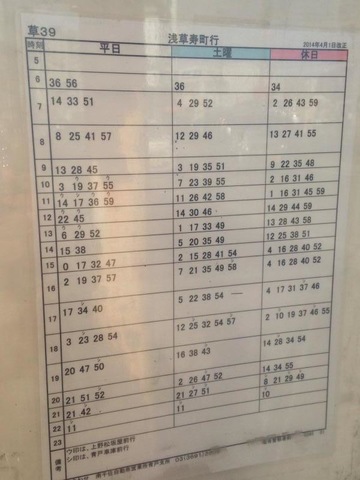 草39 浅草寿町行 2014年4月1日改正
時刻 平日 土曜 休日
5
6 36 56 36 34
7 14 33 51 4 29 52 2 26 43 59
8 8 25 41 57 12 29 46 13 27 41 55
9 13 28 45 3 19 35 51 9 22 35 48
10 3 19 37 55 7 23 39 55 2 16 31 46
11 14 17 36 59 11 26 42 58 1 16 31 45 59
12 22 45 14 30 46 14 29 44 59
13 6 29 52 1 17 33 49 13 28 43 58
14 15 38 5 20 35 49 12 25 38 51
15 0 17 32 47 2 15 28 41 54 4 16 28 40 52
16 2 19 37 57 7 21 35 49 58 4 16 28 40 52
17 17 34 40 5 22 38 54 4 17 31 37 46
18 3 23 28 54 12 25 32 54 57 2 10 19 37 46 55
19 20 47 50 16 38 43 14 28 34 54
20 21 51 52 2 26 47 52 14 34 55
21 21 42 21 27 51 8 21 29 49
22 11 11 10
23
備考 ウ印は、上野松坂屋前行
シ印は、青戸車庫前行